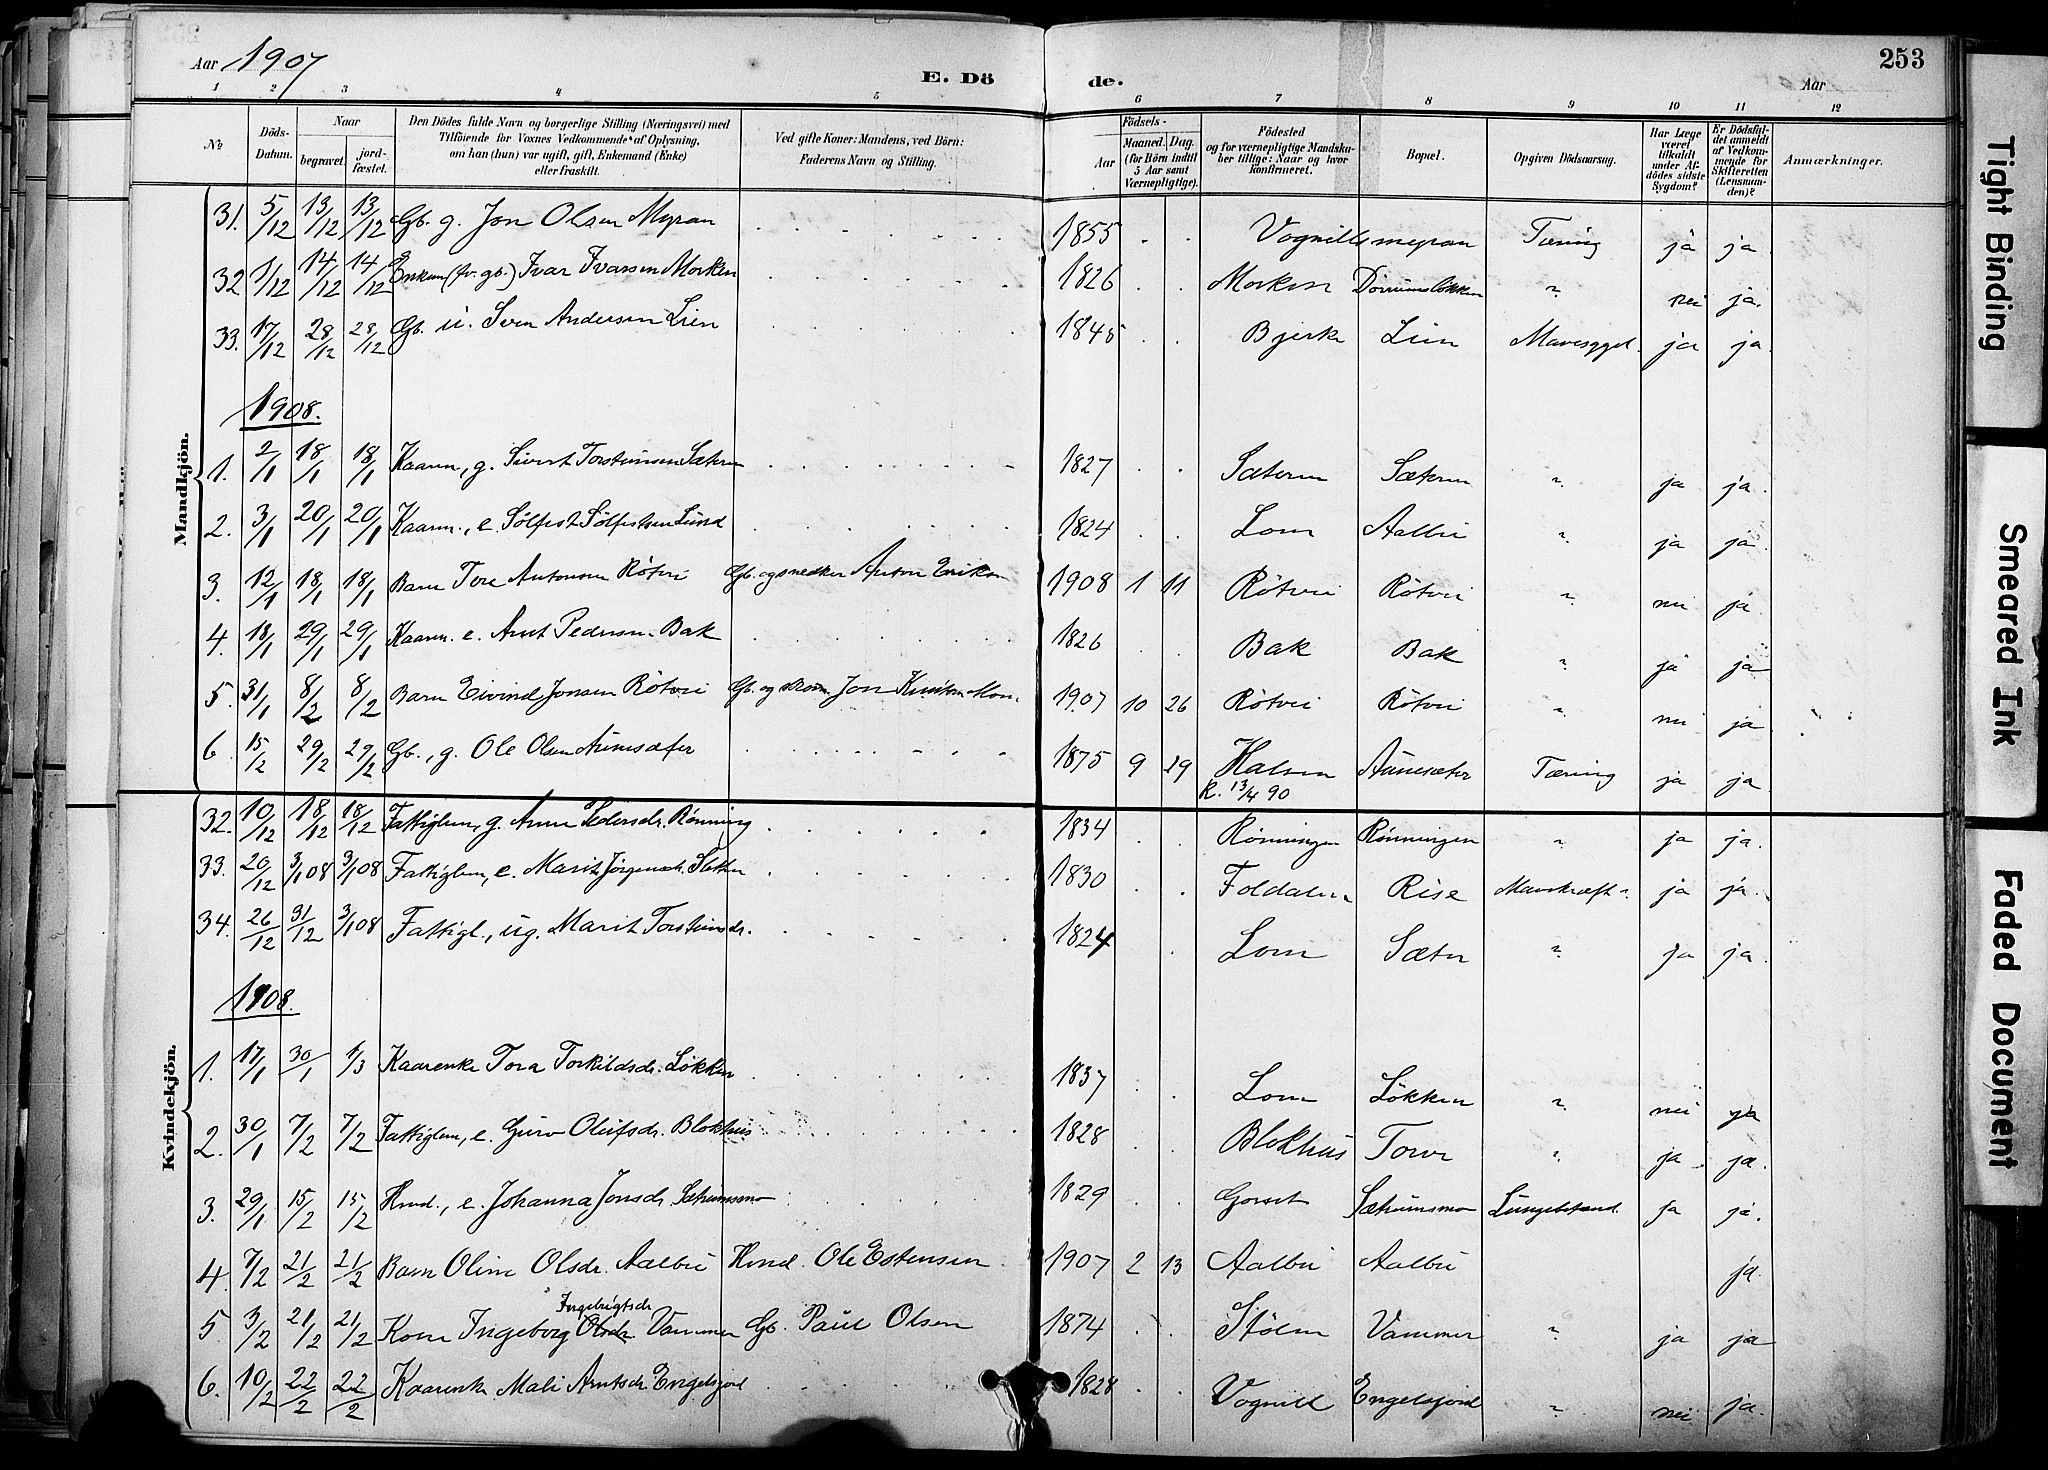 Aar 1907
E. Dö de.
Aar
253
1 2 3 4 5 6 7 8 9 10 11 12
No
Döds-Datum.
Naar
begravet.
jord-fæstet.
Den Dödes fulde Navn og borgerlige Stilling (Næringsvei) med
Tilföiende for Voxnes Vedkommende af Oplysning,
om han (hun) var ugift, gift, Enkemand (Enke)
eller fraskilt.
Ved gifte Koner: Mandens, ved Börn:
Faderens Navn og Stilling.
Födsels-
Aar
Maaned. Dag.
(for Börn indtil
5 Aar samt
Værnepligtige).
Födested
og for værnepligtige Mandska-
ber tillige: Naar og hvor
konfirmeret.
Bopæl.
Opgiven Dödsaarsag.
Har Læge
været
tilkaldt
under Af-
dödes sidste
Sygdom?
Er Dödsfal-
det anmeldt
af Vedkom-
mende for
Skifteretten
(Lensman-
den)?
Anmærkninger.
Mandkjön.
31. 5/12 13/12 13/12 Gb. g. Jon Olsen Myran 1855 Vognillsmyran Tæring ja ja
32 1/12 14/12 14/12 Enkem (fv. gb.) Ivar Ivarsen Morken 1826 Morken Dörrumsløkken " nei ja.
33. 17/12 28/12 28/12 Gb. u. Sven Andersen Lien 1845 Bjerke Lien Mavesygd. ja ja.
1908.
1. 2/1 18/1 18/1 Kaarm, g. Sivert Torsteinsen Sæteren 1827 Sæteren Sæteren " ja ja.
2. 3/1 20/1 20/1 Kaarm., e. Sölfest Sölfestsen Lund 1824 Lom Aalbu " ja ja.
3. 12/1 18/1 18/1 Barn Tore Antonsen Rötvei Gb. og snedker Anton Eriksen 1908 1 11 Rötvei Rötvei " nei ja
4. 18/1 29/1 29/1 Kaarm. e. Arnt Pedersen Bak 1826 Bak Bak " ja ja
5. 31/1 8/2 8/2 Barn Eivind Jonsen Rötvei Gb. og skom. Jon 1907 10 26 Rötvei Rötvei " nei ja
6. 15/2 29/2 29/2 Gb., g. Ole Olsen Aunesæter 1875 9 29 Halsen Aunesæter Tæring ja ja
K. 13/4 90
Kvindekjön.
32. 10/12 18/12 18/12 Fattiglem, g. Anne Pedersdr. Rønning 1834 Rønningen Rønningen " ja ja.
33. 20/12 3/1 08 3/1 08 Fattiglem, e. Marit Jörgensdr. Sletten 1830 Foldalen Rise Mavekræft ja ja.
34. 26/12 31/12 3/1 08 Fattigl., ug. Marit Torsteinsdr. 1824 Lom Sæter " ja ja.
1908.
1. 17/1 30/1 1/3 Kaarenke Tora Torkildsdr. Løkken 1837 Lom Løkken " nei ja
2. 30/1 7/2 7/2 Fattiglem, e. Guro Olufsdr. Blokhus 1828 Blokhus Torve " ja ja.
3. 29/1 15/2 15/2 Hmd., e. Johanna Jonsdr. Sætrumsmo 1829 Gorset Sætrumsmo Lungebetænd. ja ja.
4. 7/2 21/2 21/2 Barn Oline Olsdr. Aalbu Hmd. Ole Estensen 1907 2 13 Aalbu Aalbu ja.
Ingebrigtsdr
5. 3/2 21/2 21/2 Kone Ingeborg Olsdr Vammer Gb. Paul Olsen 1874 Stölen Vammer " ja ja
6. 10/2 22/2 22/2 Kaarenke Mali Arntsdr Engelsjord 1828 Vognill Engelsjord " nei ja.
Tight Binding
Smeared Ink
Faded Document